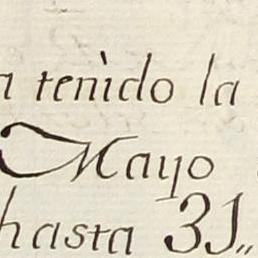 a tenido la
Mayo
hasta 31„